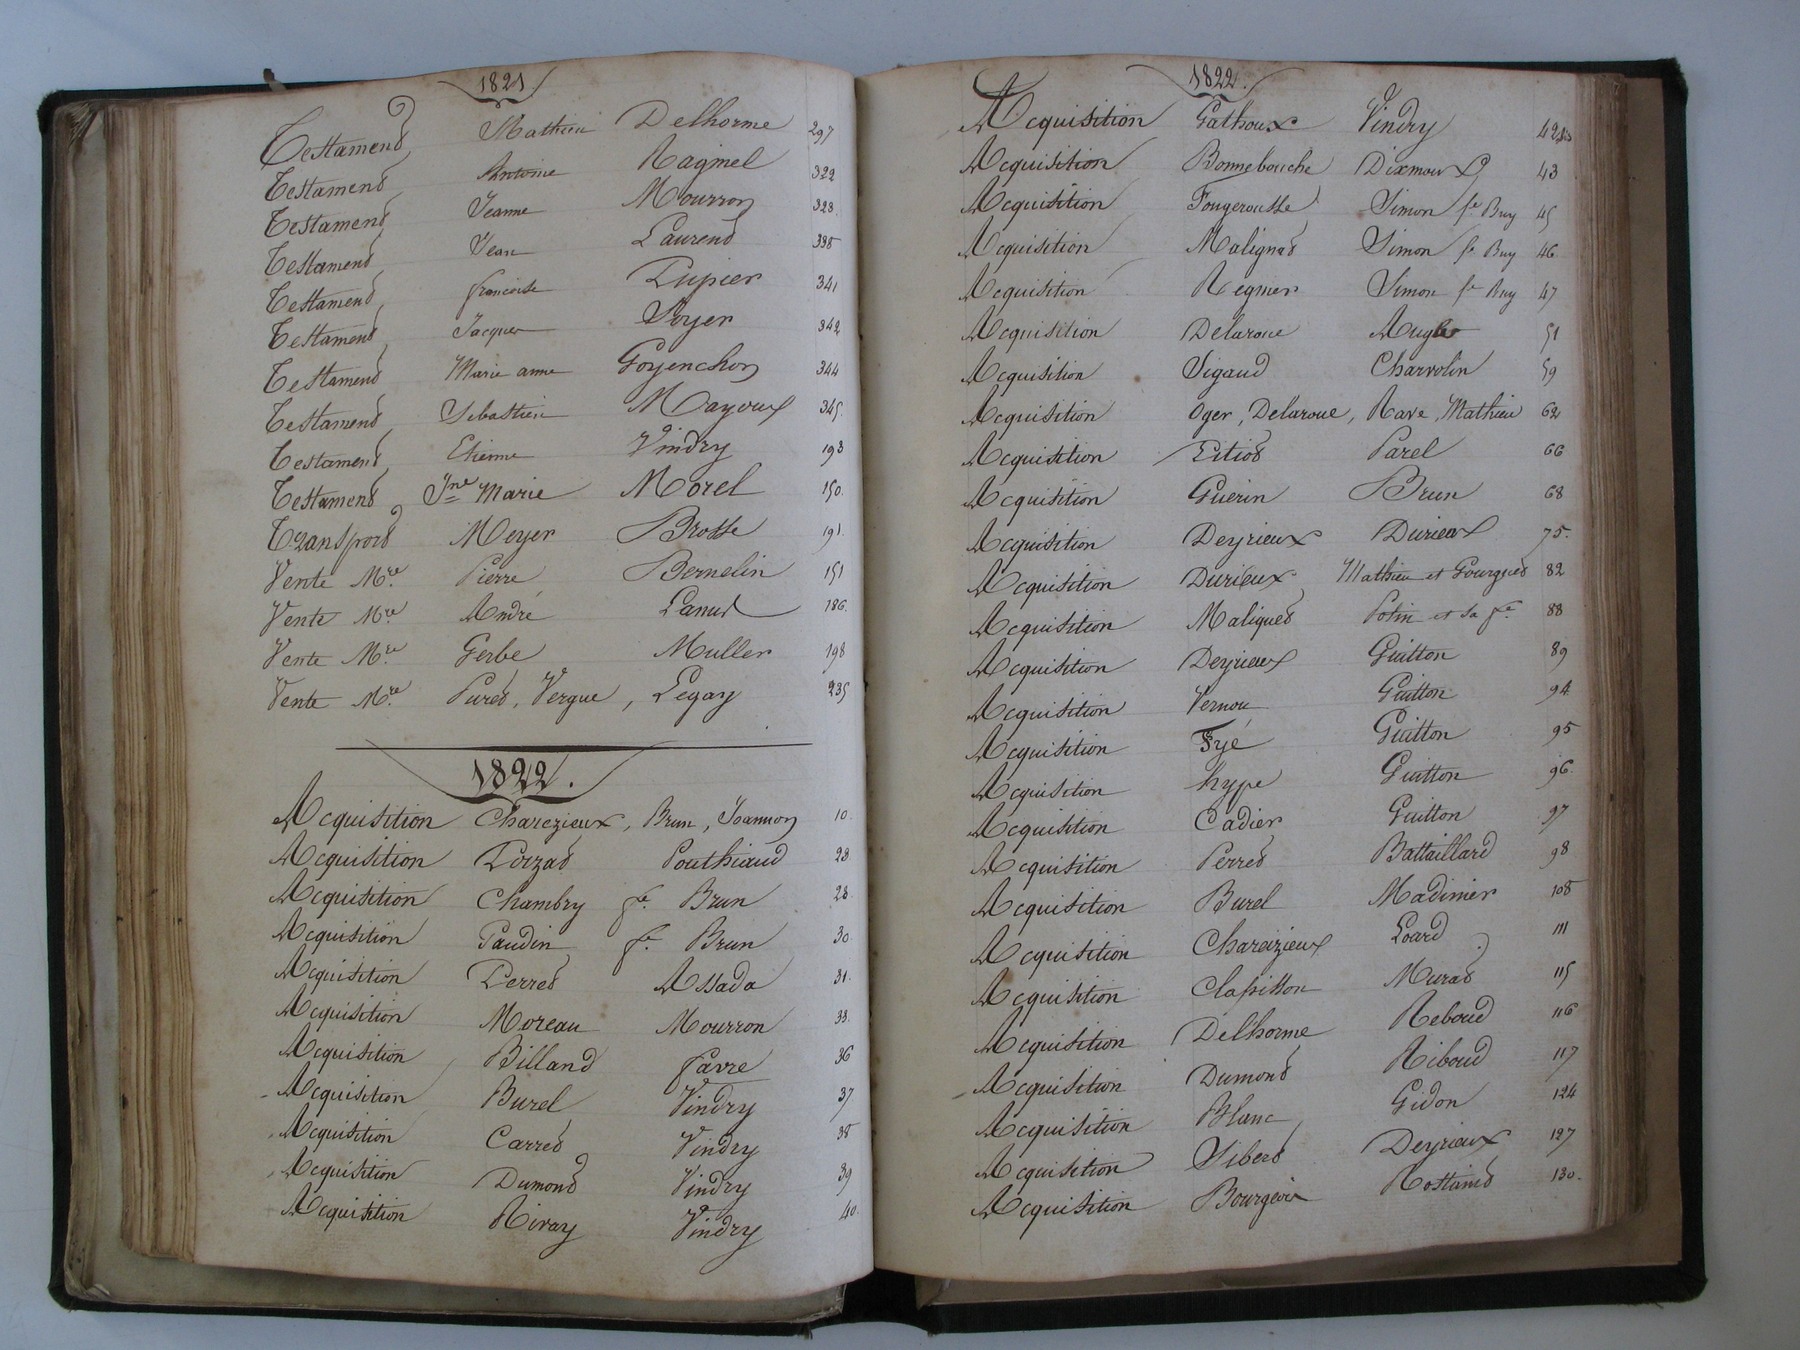 1821
Testament Mathieu Delhorme 297
Testament Antoine Raginel 322
Testament Jeanne Mourron 323.
Testament Jean Laurent 335
Testament françoise Pupier 341
Testament Jacques Soyer 342
Testament Marie anne Goyenchon 344
Testament Sebastien Mayoux 345.
Testament Etienne Vindry 193
Testament Jne Marie Morel 150.
Transport Meyer Brosse 191.
Vente Mre Pierre Bernelin 151
Vente Mre André Lanud 186.
Vente Mre Gerbe Muller 198
Vente Mre Puret, Vergue, Legay 235
1822.
Acquisition Charezieux, Brun, Joannon 10.
Acquisition Poizat Pouthiaud 23
Acquisition Chambry fe. Brun 28.
Acquisition Gaudin fe. Brun 30
Acquisition Perret Assada 31.
Acquisition Moreau Mourron 33.
Acquisition Billand Favre 36
Acquisition Burel Vindry 37
Acquisition Carret Vindry 38
Acquisition Dumont Vindry 39
Acquisition Rivay Vindry 40.
1822.
Acquisition Gathoux Vindry
Acquisition Bonnebouche Dixmoux 43
Acquisition Fougerousse Simon fe Buy 45
Acquisition Malignat Simon fe Buy 46
Acquisition Regnier Simon fe Buy 47
Acquisition Delaroue 51
Acquisition Sigaud Charvolin 59
Acquisition Oger, Delaroue, Rave, Mathieu 62
Acquisition Parel 66
Acquisition Guerin Brun 68
Acquisition Deyrieux Durieux 75.
Acquisition Durieux Mathieu et Gourguet 82
Acquisition Maliquet Potin et sa fe. 88
Acquisition Deyrieux Guitton 89
Acquisition Vernou Guitton 94
Acquisition Fyé Guitton 95
Acquisition hype Guitton 96.
Acquisition Cadier Guitton 97
Acquisition Perret Battaillard 98
Acquisition Burel Madinier 108
Acquisition Chareizieux Loard 111
Acquisition Clapisson Murat 115
Acquisition Delhorme Reboud 116
Acquisition Dumont Riboud 117
Acquisition Blanc Gidon 124
Acquisition Sibert Deyrieux 127
Acquisition Bourgeois Rostaind 130.